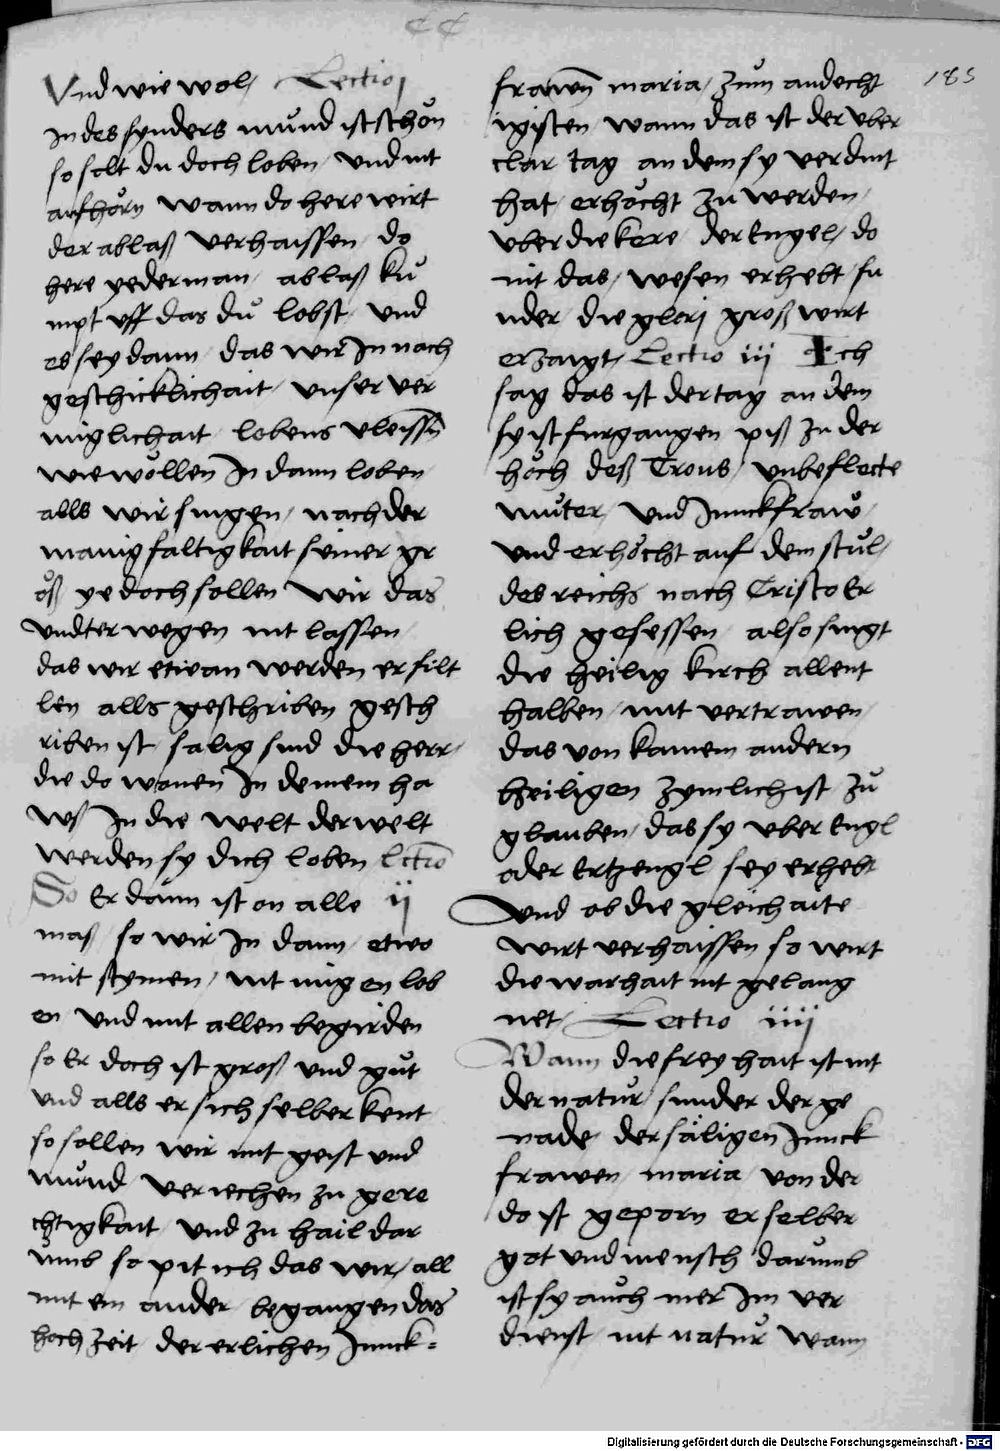 185
Vnd wie wol / Lectio j
In des synders mund ist schön
so solt du doch loben / vnd nit
auffhörn wann do here wirt
der ablaß verhaissen / do
here yederman / ablaß ku
mpt vff das dů lobst / vnd
es sey dann / das wir In nach
geschicklichait / vnser ver
miglichait lobens vleissn
wie wöllen In dann loben
alls wir singen / nach der
manigfaltigkait seiner gr
öß ye doch sollen wir das
vndter wegen nit lassen /
das wir etwan werden erfilt
len alls geschriben gesch
riben ist sälig sind die herr /
die do wonen In deinem ha
ws In die welt der welt
werden sy dich loben lectio
So Er dann ist on alle ij
mas / so wir In dann / etwo
mit stymen / nit mig en lob
en vnd mit allen begirden
so Er doch ist groß vnd gůt
vnd alls er sich selber kent
so sollen wir mit geist vnd
mund veriechen zu gere
chtigkait / vnd zu hail dar
umb so pit ich das wir / all
mit ein ander / begangen das
hoch zeit / der erlichen Junck=
frawen maria / zum andecht
igisten wann das ist der vber
clar tag an dem sy verdint
hat / erhöcht zu werden /
vber die köre / der Engel / do
nit das / wesen erhebt / su
nder die glorj groß wirt
erzaigt / Lectio iij Ich
sag das ist der tag an dem
sy ist furgangen piß zu der
höch deß Trons / vnbeflecte
muter / vnd Junckfraw /
vnd erhöcht auf dem stůl /
des reichs nach Cristo Er
lich gesessen / also singt
die heilig kirch allent
halben / mit vertrawen /
das von kainem andern
heiligen zymlich ist zů
glauben / das sy vber Engl
oder Ertzengl sey erhebt
vnd ob die gleichaite
wirt verhaissen so wirt
die warhait nit gelaug
net / Lectio iiij
Wann die freyhait ist nit
der natur / sunder der ge
nade / der säligen Junck
frawen / maria / von der
do ist geporn er selber
got vnd mensch darumb
ist sy auch mer Im ver
dienst / nit natur wann
Digitalisierung gefördert durch die Deutsche Forschungsgemeinschaft - DFG